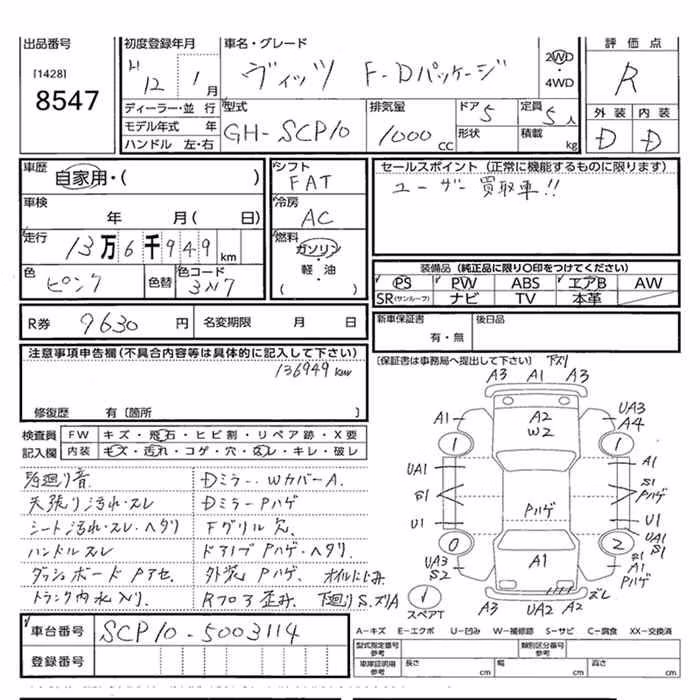 出品番号
[1428]
8547
初度登録年月
H 12年 1月
ディーラー・並行
モデル年式 年
ハンドル 左・右
車名・グレード
ヴィッツ F-Dパッケージ
2WD
・
4WD
型式
GH-SCP10
排気量
1000cc
ドア 5
形状
定員 5人
積載 kg
評価点
R
外装 内装
D D
車歴
自家用・( )
車検
年 月( 日)
走行
13万6千949km
色
ピンク
色替
色コード
3N7
シフト
FAT
冷房
AC
燃料
ガソリン
・
軽・油
( )
セールスポイント (正常に機能するものに限ります)
ユーザー買取車!!
装備品 (純正品に限り○印をつけてください)
PS PW ABS エアB AW
SR(サンルーフ) ナビ TV 本革
R券 9630円 名変期限 月 日
新車保証書 有・無
後日品
[保証書は事務局へ提出して下さい]
注意事項申告欄(不具合内容等は具体的に記入して下さい)
136949km
修復歴 有 [箇所 ]
検査員記入欄
FW キズ・飛石・ヒビ割・リペア跡・X要
内装 キズ・汚れ・コゲ・穴・スレ・キレ・破レ
足廻り音
天張り汚れ・スレ
シート汚れ・スレ・ヘタリ
ハンドルスレ
ダッシュボードPアセ.
トランク内水入り.
Dミラー. WカバーA.
DミラーPハゲ
Fグリル欠.
ドアノブPハゲ・ヘタリ.
外装Pハゲ. オイルにじみ
Rフロア歪み. 下廻りS.ズリA
下ズリ
A3 A1 A3
A1 A2 W2 UA3 A4
1 1
UA1 A1
S1 S1 Pハゲ
U1 Pハゲ U1
0 2 UA1 S1
UA3 S2 A1 A1 Pハゲ
スペアT
A3 UA2 A2 ズレ
A-キズ E-エクボ U-凹み W-補修跡 S-サビ C-腐食 XX-交換済
車台番号 SCP10-5003114
登録番号
型式指定番号参考
類別区分番号参考
車庫証明用参考
長さ cm
幅 cm
高さ cm